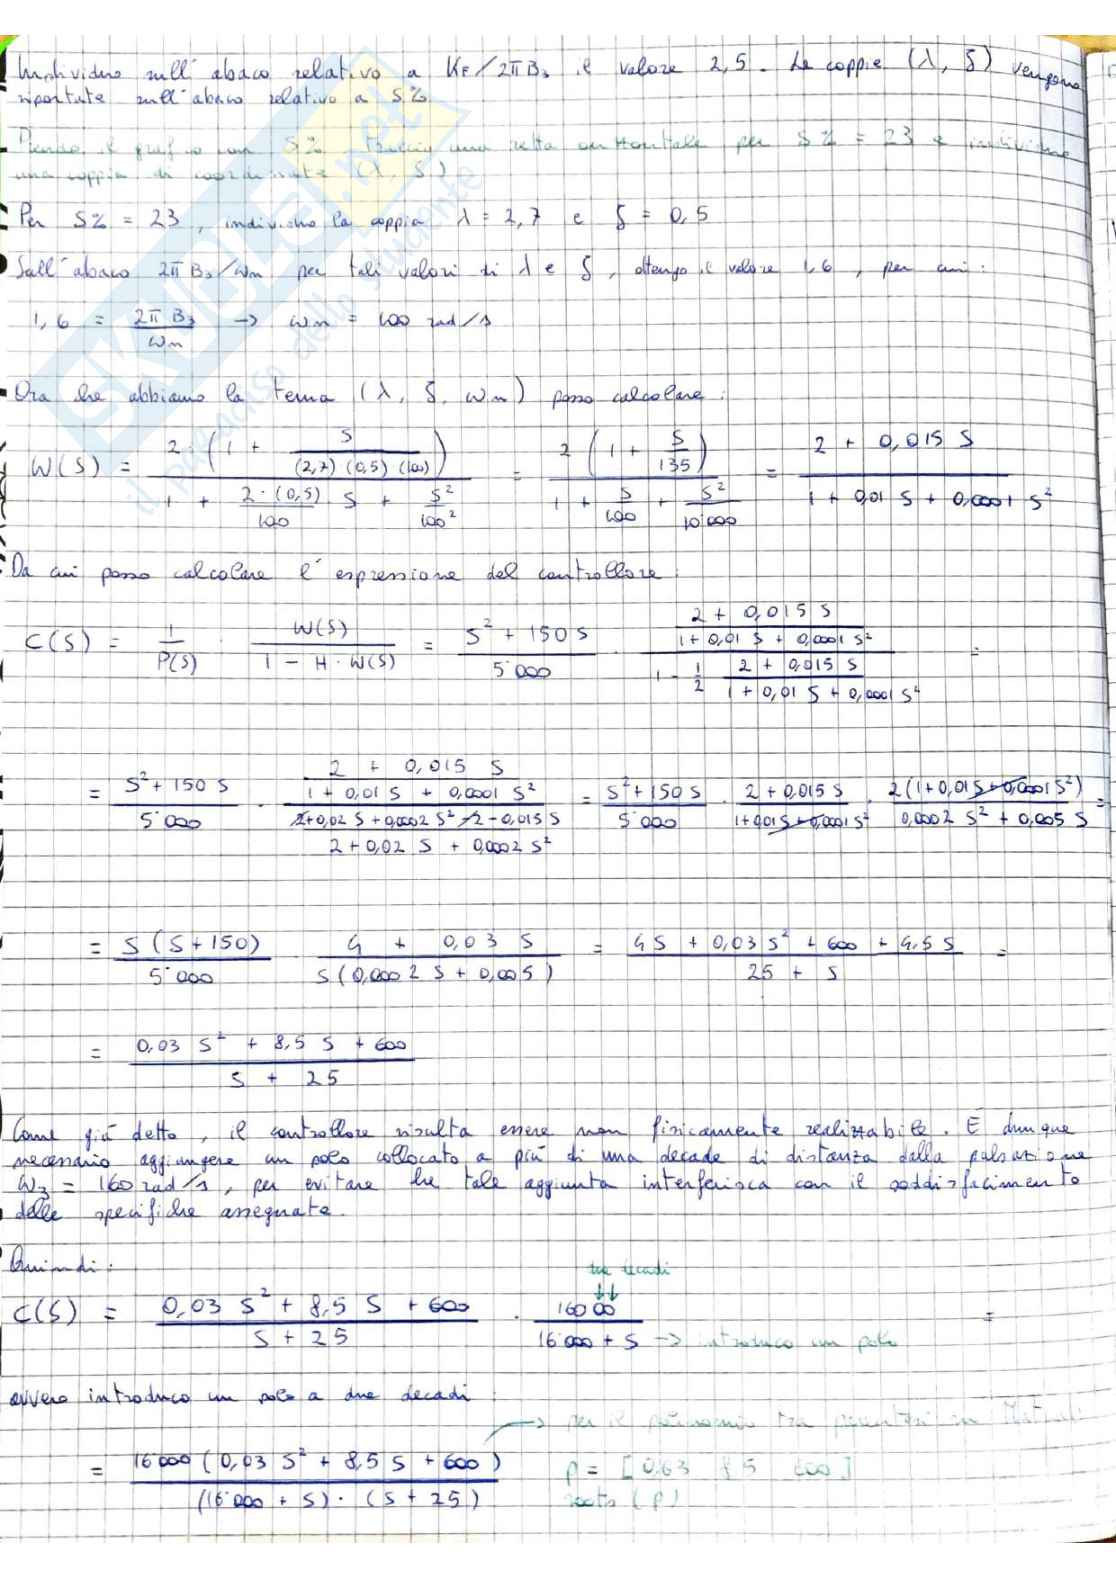 Individuo sull'abaco relativo a KF/2π B3 il valore 2,5. Le coppie (λ, δ) vengono
riportate sull'abaco relativo a S%
Prendo il grafico con S%. Traccio una retta orizzontale per S% = 23 e individuo
una coppia di coordinate (λ, δ)
Per S% = 23, individuo la coppia λ = 2,7 e δ = 0,5
Sull'abaco 2π B3/ωn per tali valori di λ e δ, ottengo il valore 1,6, per cui:
1,6 = 2π B3 / ωn → ωn = 100 rad/s
Ora che abbiamo la terna (λ, δ, ωn) posso calcolare:
W(S) = 2·(1 + S / (2,7)(0,5)(100)) / (1 + 2·(0,5)/100 S + S²/100²) = 2 (1 + S/135) / (1 + S/100 + S²/10'000) = 2 + 0,015 S / 1 + 0,01 S + 0,0001 S²
Da cui posso calcolare l'espressione del controllore:
C(S) = 1/P(S) · W(S) / 1 - H·W(S) = S² + 150 S / 5'000 · (2 + 0,015 S / 1 + 0,01 S + 0,0001 S²) / (1 - 1/2 · 2 + 0,015 S / 1 + 0,01 S + 0,0001 S²) =
= S² + 150 S / 5'000 · (2 + 0,015 S / 1 + 0,01 S + 0,0001 S²) / (2+0,02 S + 0,0002 S² - 2 - 0,015 S / 2 + 0,02 S + 0,0002 S²) = S² + 150 S / 5'000 · 2 + 0,015 S / 1 + 0,01 S + 0,0001 S² · 2 (1 + 0,01 S + 0,0001 S²) / 0,0002 S² + 0,005 S =
= S (S + 150) / 5'000 4 + 0,03 S / S (0,0002 S + 0,005) = 4S + 0,03 S² + 600 + 4,5 S / 25 + S =
= 0,03 S² + 8,5 S + 600 / S + 25
Come già detto, il controllore risulta essere non fisicamente realizzabile. È dunque
necessario aggiungere un polo collocato a più di una decade di distanza dalla pulsazione
ω3 = 160 rad/s, per evitare che tale aggiunta interferisca con il soddisfacimento
delle specifiche assegnate.
Quindi:
due decadi
↓↓
C(S) = 0,03 S² + 8,5 S + 600 / S + 25 · 16000 / 16'000 + S → introduco un polo =
ovvero introduco un polo a due decadi:
→ per il polinomio tra parentesi in Matlab
= 16'000 (0,03 S² + 8,5 S + 600) / (16'000 + S) · (S + 25)
p = [0,03 8,5 600]
roots (p)
SKUOLA.net
il paradiso dello studente